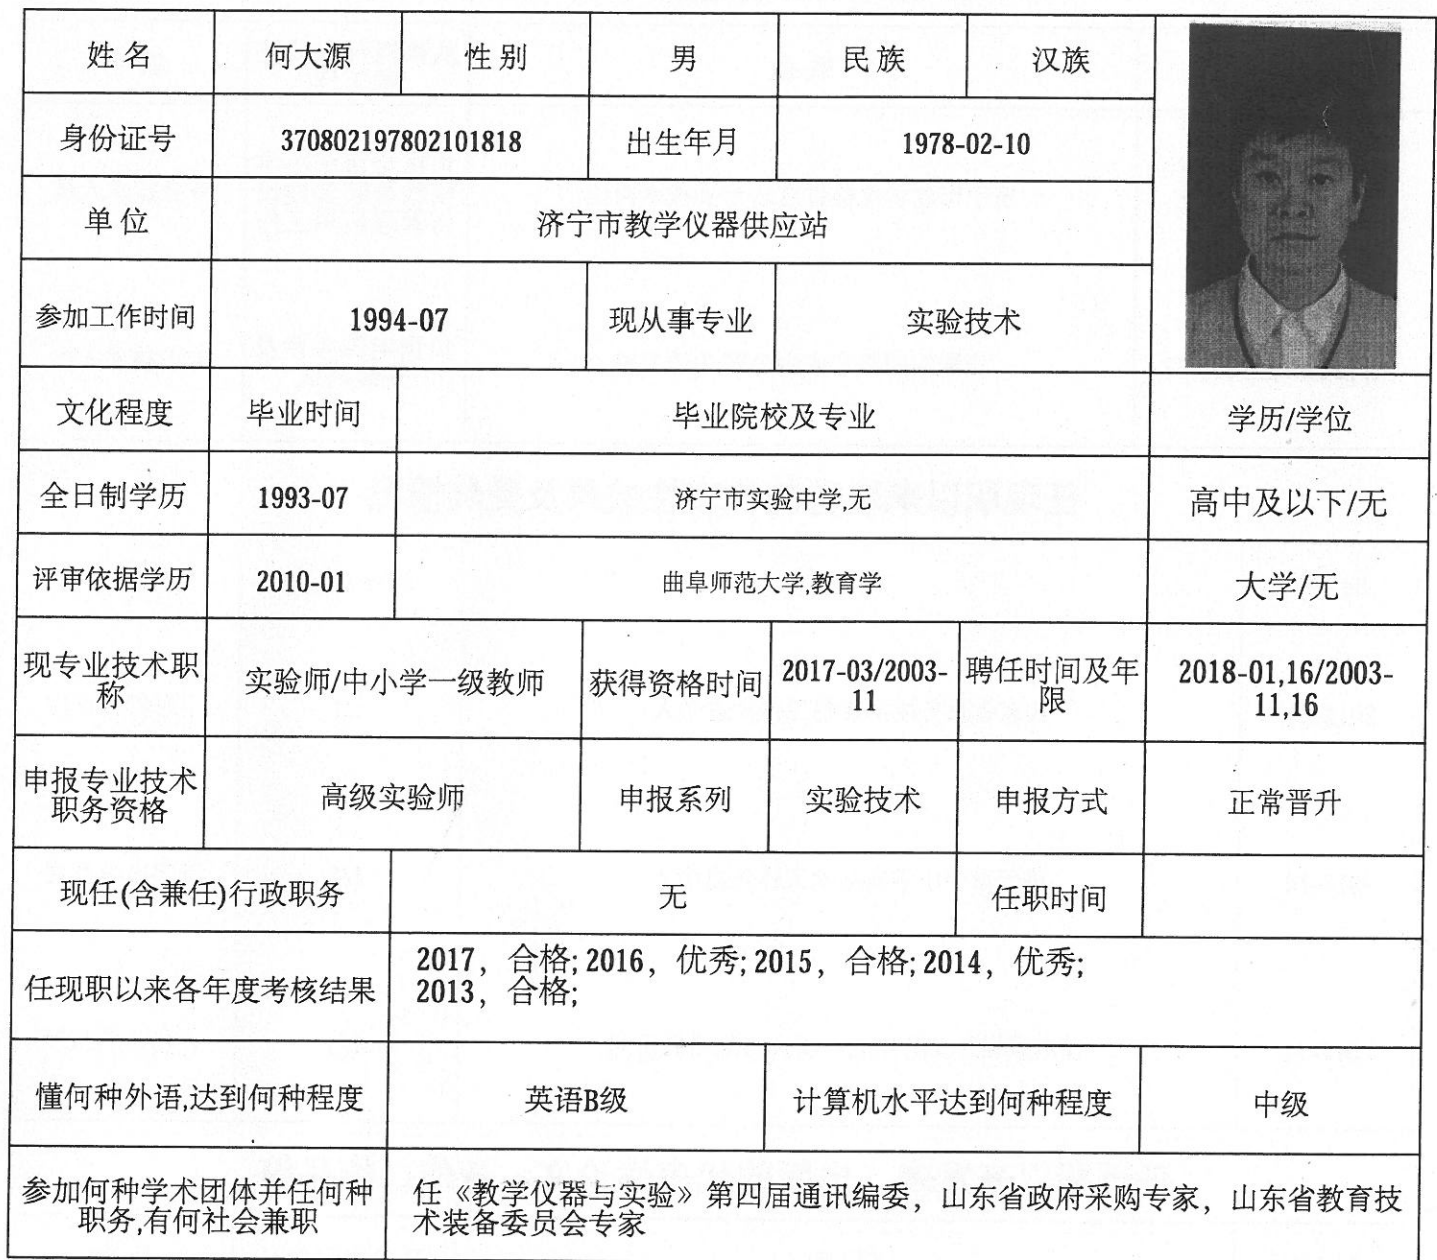 姓名 何大源 性别 男 民族 汉族
身份证号 370802197802101818 出生年月 1978-02-10
单位 济宁市教学仪器供应站
参加工作时间 1994-07 现从事专业 实验技术
文化程度 毕业时间 毕业院校及专业 学历/学位
全日制学历 1993-07 济宁市实验中学,无 高中及以下/无
评审依据学历 2010-01 曲阜师范大学,教育学 大学/无
现专业技术职
称
实验师/中小学一级教师 获得资格时间
2017-03/2003-
11
聘任时间及年
限
2018-01,16/2003-
11,16
申报专业技术
职务资格
高级实验师 申报系列 实验技术 申报方式 正常晋升
现任(含兼任)行政职务 无 任职时间
任现职以来各年度考核结果
2017，合格;2016，优秀;2015，合格;2014，优秀;
2013，合格;
懂何种外语,达到何种程度 英语B级 计算机水平达到何种程度 中级
参加何种学术团体并任何种
职务,有何社会兼职
任《教学仪器与实验》第四届通讯编委，山东省政府采购专家，山东省教育技
术装备委员会专家